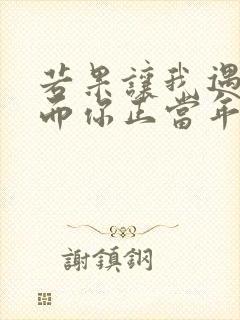 若果讓我遇
而你正當年
謝鎮鋼